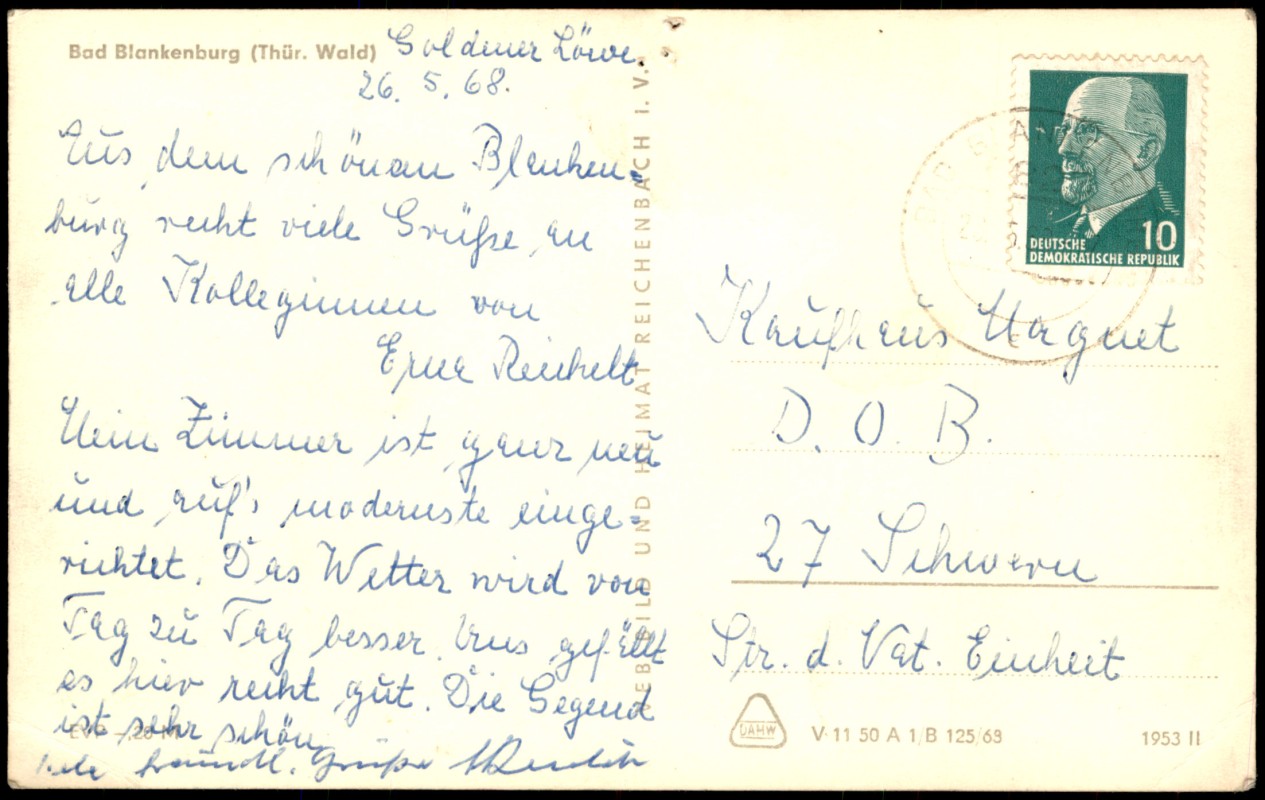 Bad Blankenburg (Thür. Wald) Goldener Löwe.
26. 5. 68.
Aus dem schönen Blanken=
burg recht viele Grüße an
alle Kolleginnen von
Erna Reichelt
Mein Zimmer ist ganz neu
und auf's modernste einge=
richtet. Das Wetter wird von
Tag zu Tag besser. Uns gefällt
es hier recht gut. Die Gegend
ist sehr schön
Viele freundl. Grüße
BILD UND HEIMAT REICHENBACH I. V.
DEUTSCHE
DEMOKRATISCHE REPUBLIK
10
Kaufhaus Magnet
D. O. B.
27 Schwerin
Str. d. Vat. Einheit
DAHW
V 11 50 A 1/B 125/68
1953 II